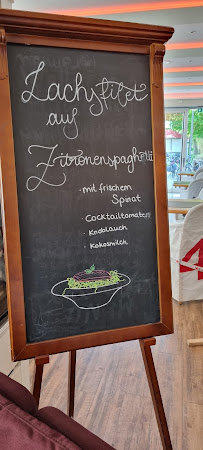 Lachsfilet
auf
Zitronenspaghetti
· mit frischem
Spinat
· Cocktailtomaten
· Knoblauch
· Kokosmilch